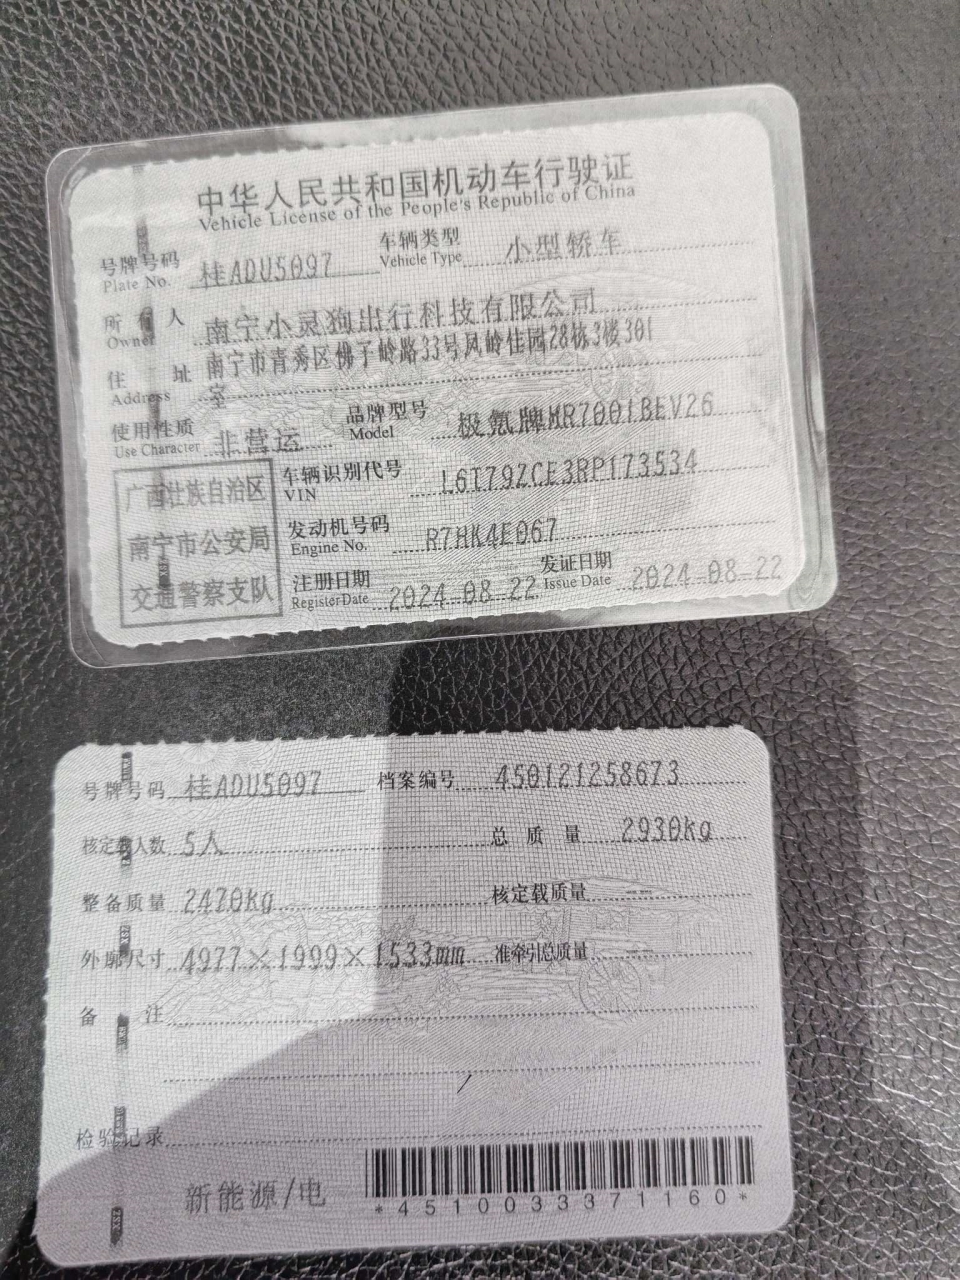 中华人民共和国机动车行驶证
Vehicle License of the People's Republic of China
号牌号码 桂ADU5097 车辆类型 小型轿车
Plate No. Vehicle Type
所有人 南宁小灵狗出行科技有限公司
Owner
住址 南宁市青秀区佛子岭路33号凤岭佳园28栋3楼301
Address 室
使用性质 非营运 品牌型号 极氪牌MR7001BEV26
Use Character Model
广西壮族自治区
南宁市公安局
交通警察支队
车辆识别代号 L6T79ZCE3RP173534
VIN
发动机号码 R7HK4E067
Engine No.
注册日期 2024-08-22 发证日期 2024-08-22
Register Date Issue Date
号牌号码 桂ADU5097 档案编号 450121258673
核定载人数 5人 总质量 2930kg
整备质量 2470kg 核定载质量 --
外廓尺寸 4977×1999×1533mm 准牵引总质量
备注
/
检验记录
新能源/电
*4510033371160*